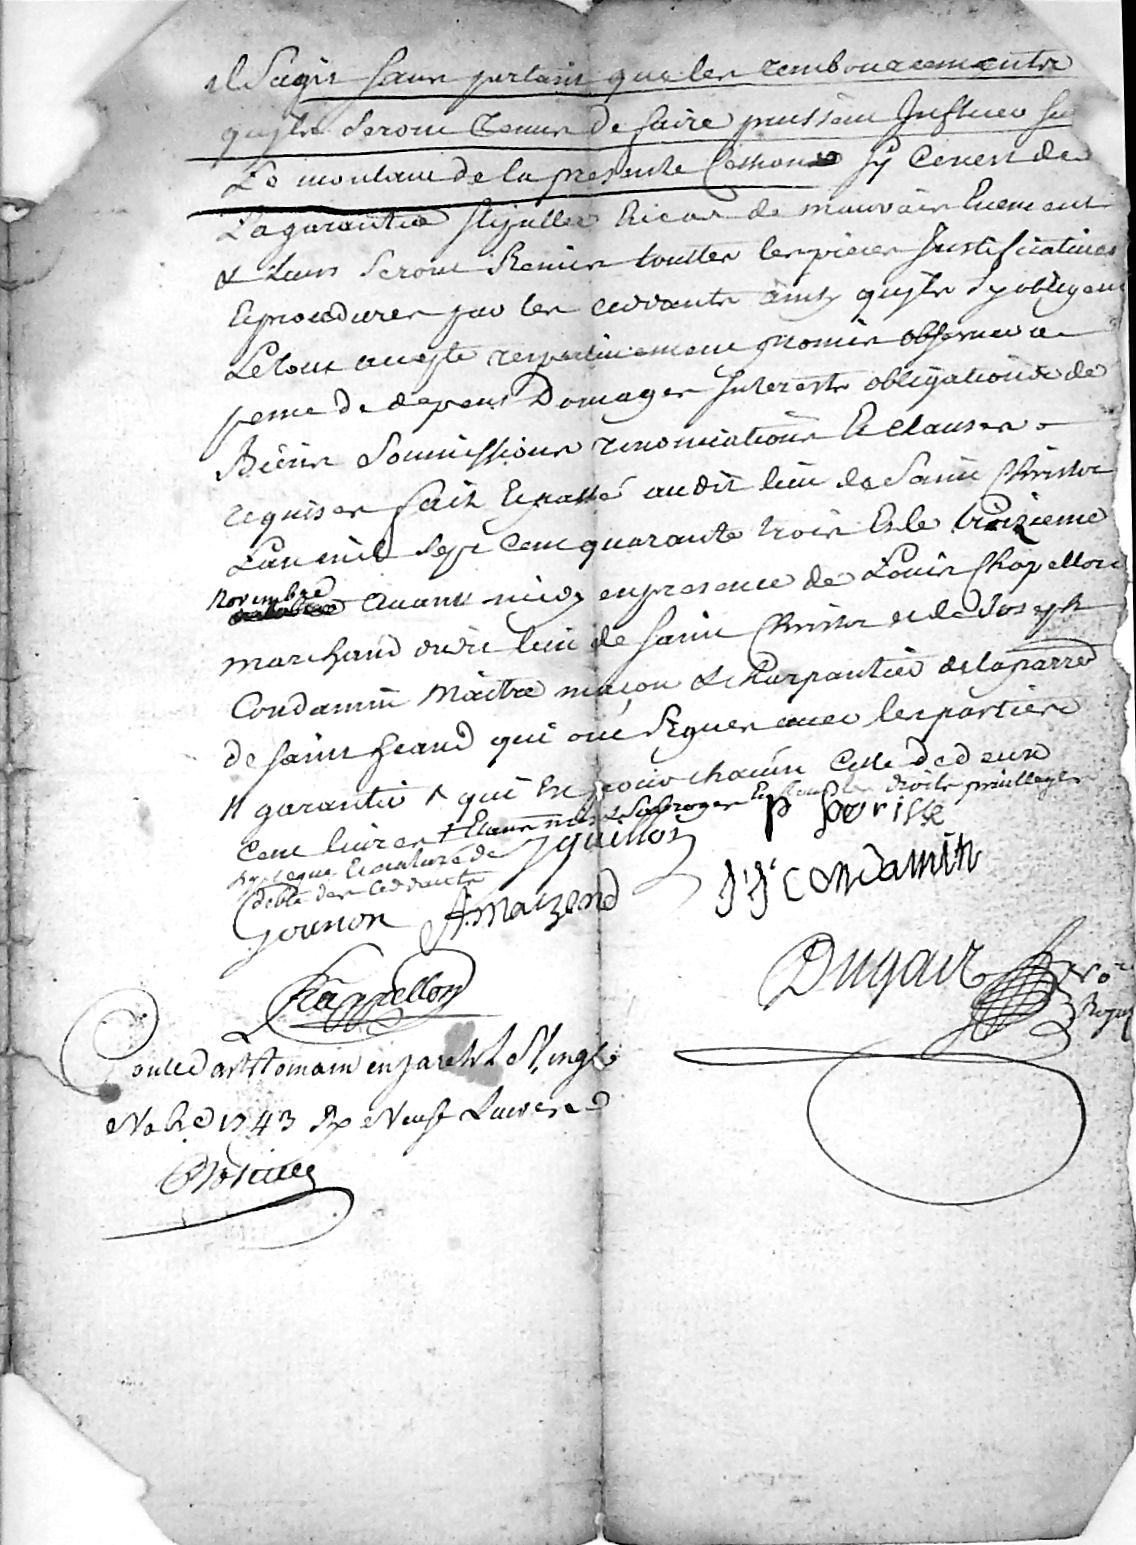 il sagit sans pertant que les remboursements
quyls seront tenus de faire puissent Influer su
Le montant de la presente Cession sy Cenest de
La garantie stipullée Encas de mauvais Evenement
& Leurs seront Remis touttes les pieces Justificatives
Et procedures par les ceddants ainsy quyls sy obligent
Letout accepté respectivement promis observer a
peine de depens Domages Interests obligations de
Biens Soumissions renonciations Et clauses
requises fait Et passé audit lieu de Saint Christo
L'an mil sept cent quarante trois Et le troizieme
novembre avant midy en presence de Louis Chapellon
marchand dudit lieu de Saint Christo et de Joseph
Condamin Maitre maçon & Charpantier de la parre
de Saint heand qui ont signer avec les parties
garantie & qui En pour chacun Celle de deux
Cent livres + Etant mis & Subroger En tous les droits privilleges
hypoteques Et nature de
debte des Ceddants
J Guillon
P Goriss
Gounon A Maizend
J J Condamin
Chappellon
Dugair No.re
Royal
Coulé a St Romain en jarest Le St
Nobre 1743 Rx Neuf Livres